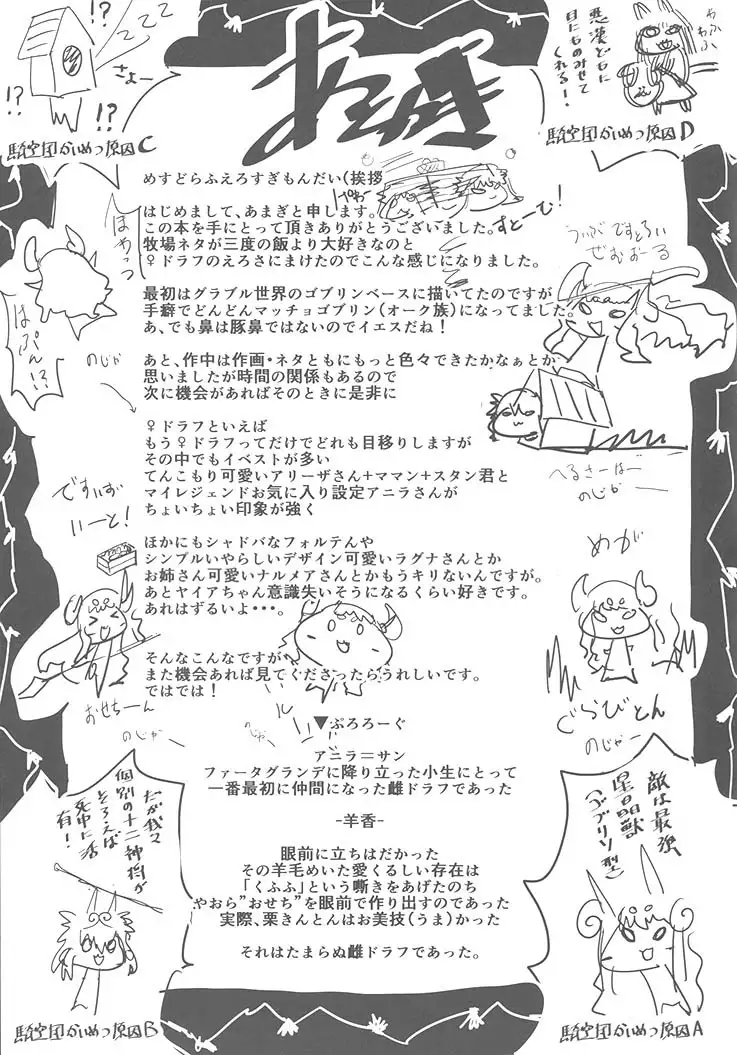 あとがき
ZZZ
!?
!?
!?
!?
さよー
騎空団かいめつ原因C
わふふ
わふ
悪漢どもに
目にものみせて
くれる!
騎空団かいめつ原因D
めすどらふえろすぎもんだい(挨拶
はじめまして、あまぎと申します。
この本を手にとって頂きありがとうございました。
牧場ネタが三度の飯より大好きなのと
♀ドラフのえろさにまけたのでこんな感じになりました。
すとーむ!
ほめっつ
はぷん!?
のじゃ
うぃがですとろい
ぜおおーる
最初はグラブル世界のゴブリンベースに描いてたのですが
手癖でどんどんマッチョゴブリン(オーク族)になってました。
あ、でも鼻は豚鼻ではないのでイエスだね!
あと、作中は作画・ネタともにもっと色々できたかなぁとか
思いましたが時間の関係もあるので
次に機会があればそのときに是非に
♀ドラフといえば
もう♀ドラフってだけでどれも目移りしますが
その中でもイベストが多い
てんこもり可愛いアリーザさん+ママン+スタン君と
マイレジェンドお気に入り設定アニラさんが
ちょいちょい印象が強く
へるさーばー
のじゃー
ですいずお
いーと!
ほかにもシャドバなフォルテんや
シンプルいやらしいデザイン可愛いラグナさんとか
お姉さん可愛いナルメアさんとかもうキリないんですが。
あとヤイアちゃん意識失いそうになるくらい好きです。
あれはずるいよ・・・。
めが
ぐらびとん
のじゃー
おせちーん
のじゃー
そんなこんなですが
また機会あれば見てくださったらうれしいです。
ではでは!
のじゃ
▼ぷろろーぐ
アニラ=サン
ファータグランデに降り立った小生にとって
一番最初に仲間になった雌ドラフであった
-羊香-
眼前に立ちはだかった
その羊毛めいた愛くるしい存在は
「くふふ」という嘶きをあげたのち
やおら”おせち”を眼前で作り出すのであった
実際、栗きんとんはお美技(うま)かった
それはたまらぬ雌ドラフであった。
だが我々
個別の十二神将が
そろえば
死中に活
有!
騎空団かいめつ原因B
敵は最強
星晶獣
(ゴブリン型)
騎空団かいめつ原因A